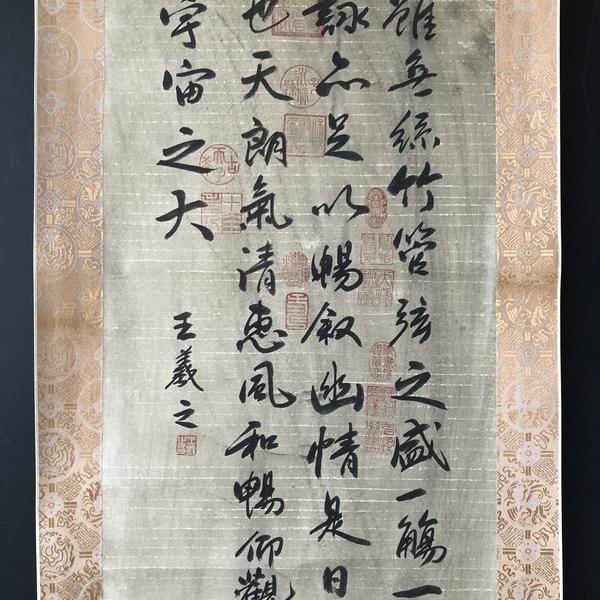 雖無絲竹管弦之盛一觴一
詠亦足以暢敘幽情是日
也天朗氣清惠風和暢仰觀
宇宙之大
王羲之